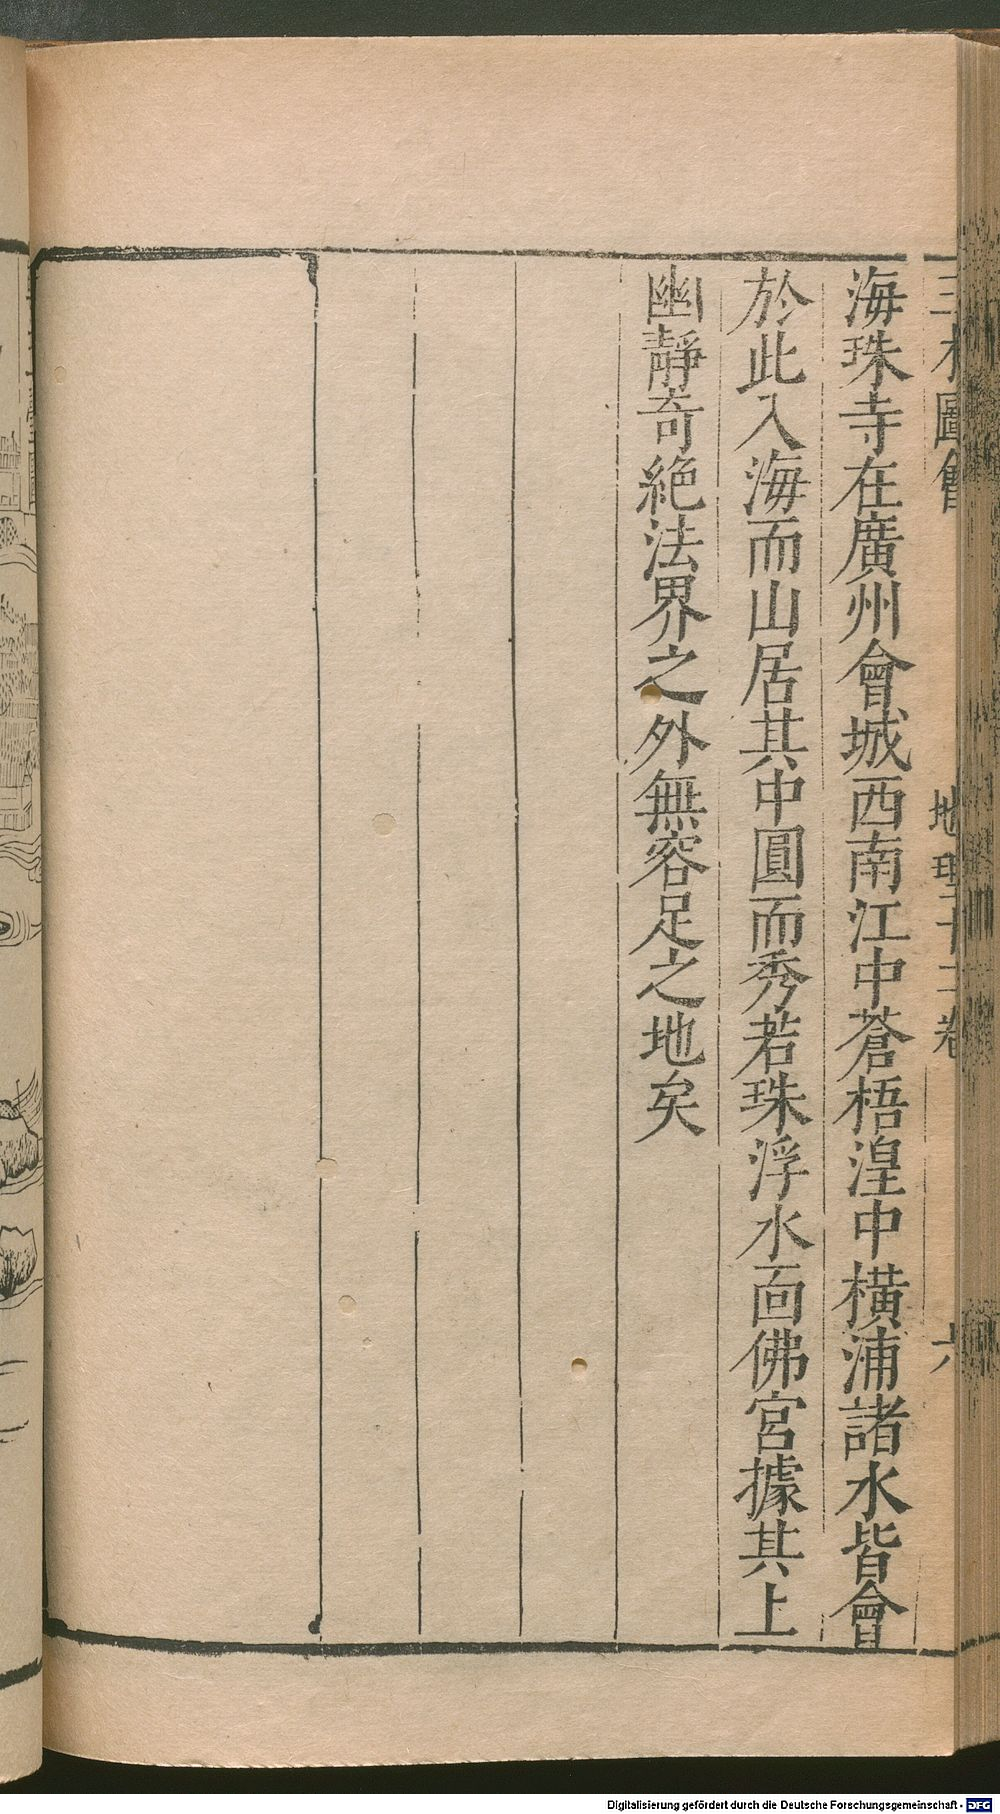 三才圖會 地理十二卷 六
海珠寺在廣州會城西南江中蒼梧湟中橫浦諸水皆會
於此入海而山居其中圓而秀若珠浮水面佛宮據其上
幽靜奇絶法界之外無容足之地矣
Digitalisierung gefördert durch die Deutsche Forschungsgemeinschaft - DFG